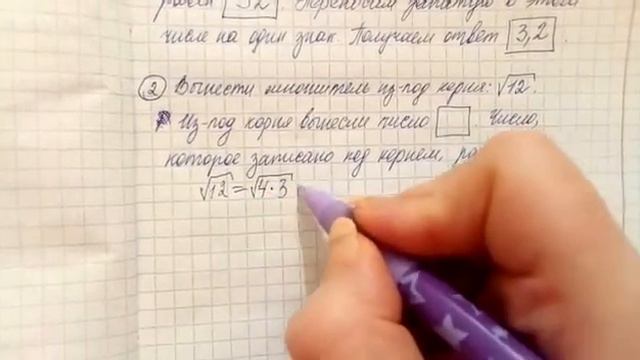 равен 32. Переносим запятую в этом
числе на один знак. Получаем ответ 3,2.
2 Вынести множитель из-под корня: √12.
Из-под корня вынесли число □. Число,
которое записано под корнем,
√12 = √4·3